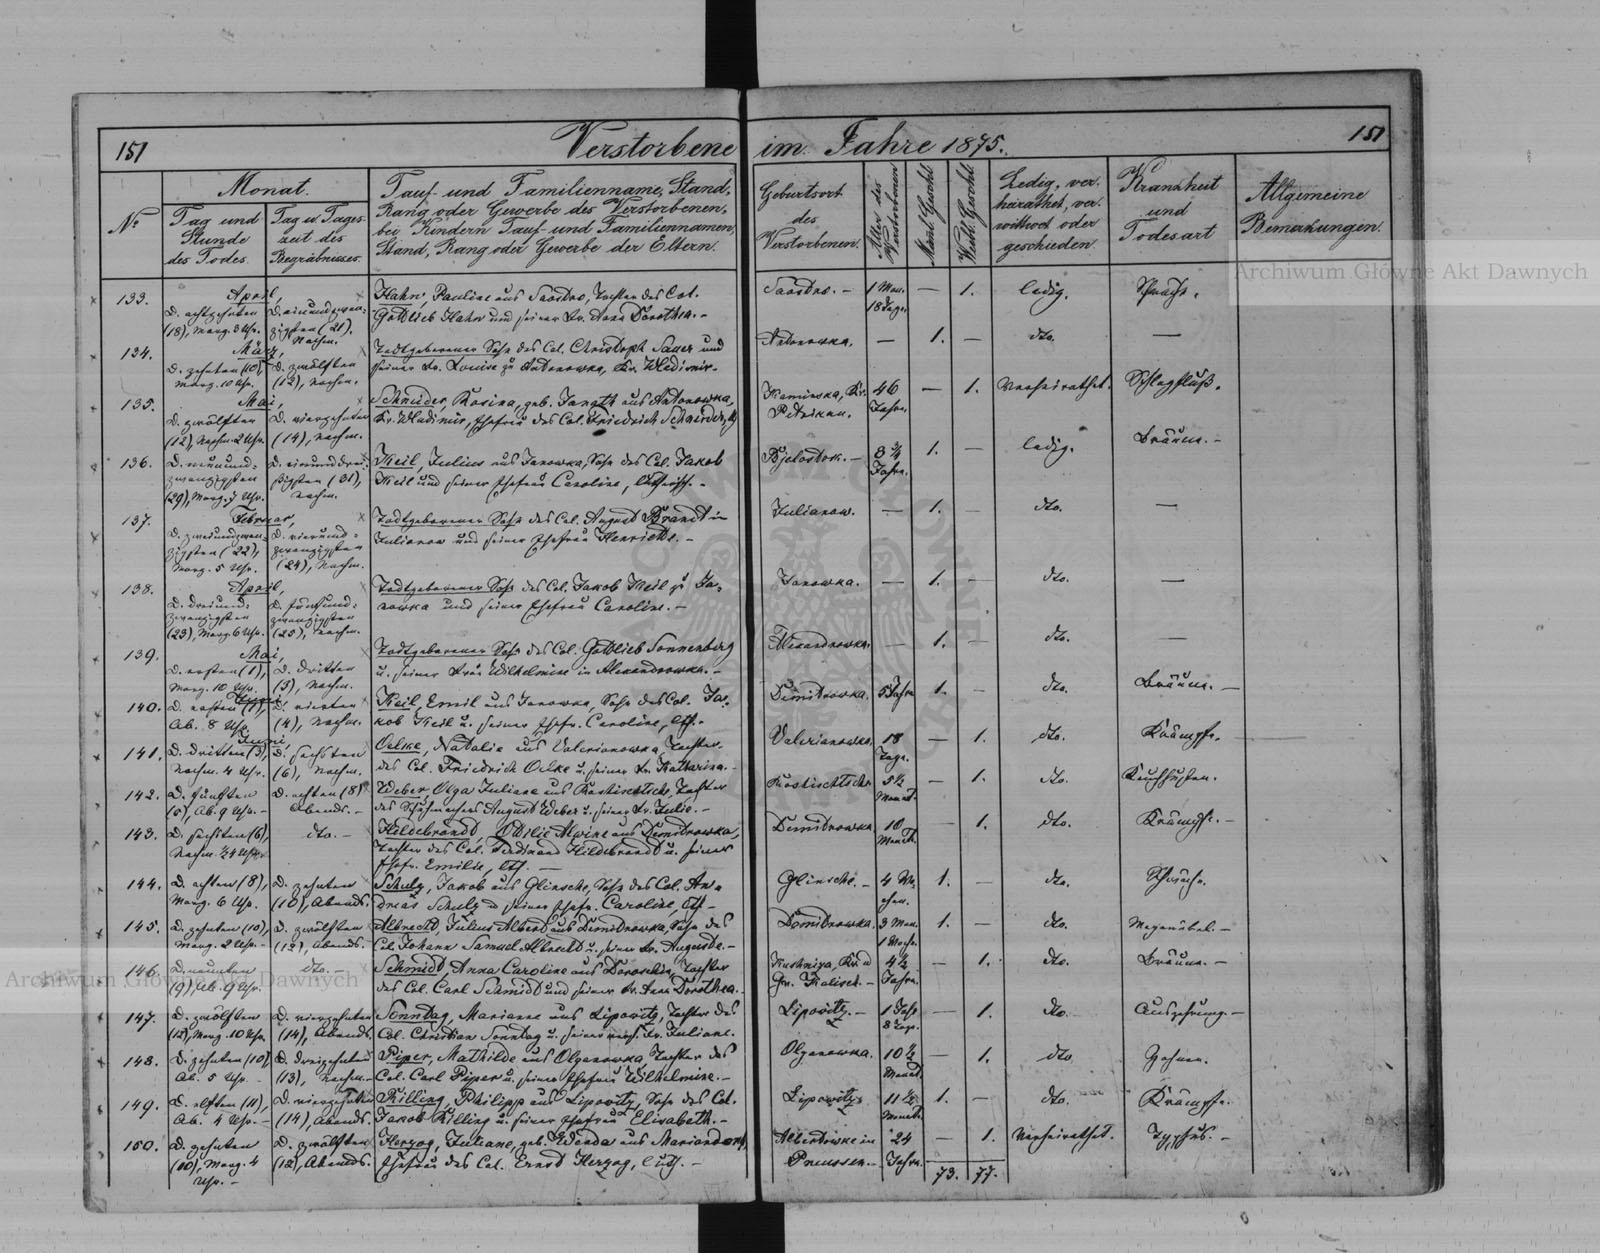 151 Verstorbene im Jahre 1875. 151
No
Monat.
Tag und Stunde des Todes.
Tag u. Tageszeit des Begräbnisses.
Tauf- und Familienname, Stand,
Rang oder Gewerbe des Verstorbenen,
bei Kindern Tauf- und Familiennamen,
Stand, Rang oder Gewerbe der Eltern.
Geburtsort des Verstorbenen.
Alter des Verstorbenen
Männl. Geschl.
Weibl. Geschl.
Ledig, verheirathet, verwittwet oder geschieden.
Krankheit und Todesart
Allgemeine Bemerkungen.
133. April,
D. achtzehnten (18), Morg. 3 Uhr.
D. einundzwanzigsten (21), Nachm.
Hahn, Pauline aus Saosdro, Tochter des Col.
Gottlieb Hahn und seiner Fr. Anna Dorothea.-
Saosdro.- 1 Mon. 18 Tage. — 1. ledig.
134. März,
D. zehnten (10), Morg. 10 Uhr.
D. zwölften (12), Nachm.
Todtgeborener Sohn des Col. Christoph Sauer und
seiner Fr. Louise zu Antonowka, Kr. Wladimir.
Antonowka. — 1. — dto. —
135. Mai,
D. zwölften (12), Nachm. 2 Uhr.
D. vierzehnten (14), Nachm.
Schneider, Rosina, geb. Jangth aus Antonowka,
Kr. Wladimir, Ehefrau des Col. Friedrich Schneider,
Kaminska, Kr. Petrikau. 46 Jahre. — 1. Verheirathet. Schlagfluß.
136. D. neunundzwanzigsten (29), Morg. Uhr.
D. einunddreißigsten (31), Nachm.
Keil, Julius aus Janowka, Sohn des Col. Jakob
Keil und seiner Ehefrau Caroline,
Bjelostok.- 3 3/4 Jahre. 1. — ledig. Bräune.-
137. Februar,
D. zweiundzwanzigsten (22), Morg. 5 Uhr.
D. vierundzwanzigsten (24), Nachm.
Todtgeborener Sohn des Col. August Brandt in
Julianow und seiner Ehefrau Henriette.-
Julianow. — 1. — dto. —
138. April,
D. dreiundzwanzigsten (23), Morg. 6 Uhr.
D. fünfundzwanzigsten (25), Nachm.
Todtgeborener Sohn des Col. Jakob Keil zu Ja-
nowka und seiner Ehefrau Caroline.-
Janowka. — 1. — dto. —
139. Mai,
D. ersten (1), Morg. 10 Uhr.
D. dritten (3), Nachm.
Todtgeborener Sohn des Col. Gottlieb Sonnenberg
u. seiner Frau Wilhelmine in Alexandrowka.-
Alexandrowka. — 1. — dto. —
140. D. ersten (1), Ab. 8 Uhr.
D. vierten (4), Nachm.
Keil, Emil aus Janowka, Sohn des Col. Ja-
kob Keil u. seiner Ehefr. Caroline,
Dimitrowka. 5 Jahre 1. — dto. Bräune.-
141. Juni,
D. dritten (3), Nachm. 4 Uhr.
D. sechsten (6), Nachm.
Oelke, Natalie aus Valerianowka, Tochter
des Col. Friedrich Oelke u. seiner Fr. Katharina.-
Valerianowka. 18 Tage. — 1. dto. Krämpfe.
142. D. fünften (5), Ab. 9 Uhr.-
D. achten (8), Abends.-
Weber, Olga Juliane aus Kostischtsche, Tochter
des Schuhmachers August Weber u. seiner Fr. Julie.-
Kostischtsche 5 1/2 Monat. — 1. dto. Keuchhusten.
143. D. sechsten (6), Nachm. 1/2 4 Uhr.
dto.-
Hildebrandt, Ottilie Alwine aus Dimitrowka,
Tochter des Col. Ferdinand Hildebrandt u. seiner
Ehefr. Emilie,
Dimitrowka 10 Monat. — 1. dto. Krämpfe.-
144. D. achten (8), Morg. 6 Uhr.
D. zehnten (10), Abends.
Schulz, Jakob aus Glinsche, Sohn des Col. An-
dreas Schulz u. seiner Ehefr. Caroline,
Glinische.- 4 Wochen. 1. — dto. Schwäche.
145. D. zehnten (10), Morg. 2 Uhr.-
D. zwölften (12), Abends.-
Albrecht, Julius Albert aus Dimitrowka, Sohn des
Col. Johann Samuel Albrecht u. seiner Fr. Auguste.-
Domitrowka. 3 Mon. 1 Woche. 1. — dto. Magenübel.-
146. D. neunten (9), Ab. 9 Uhr.
dto.-
Schmidt, Anna Caroline aus Doroschin, Tochter
des Col. Carl Schmidt und seiner Fr. Anna Dorothea.-
Kuschnisa, Kr. u. Gv. Kalisch.- 4 1/2 Jahre. — 1. dto. Bräune.-
147. D. zwölften (12), Morg. 10 Uhr.
D. vierzehnten (14), Abends.
Sonntag, Marianne aus Lipovitz, Tochter des
Col. Christian Sonntag u. seiner Fr. Juliane.
Lipovitz.- 1 Jahr 8 Tage. — 1. dto. Auszehrung.-
148. D. zehnten (10), Ab. 5 Uhr.
D. dreizehnten (13), Nachm.-
Piper, Mathilde aus Olganowka, Tochter des
Col. Carl Piper u. seiner Ehefrau Wilhelmine.-
Olganowka. 10 1/2 Monat. — 1. dto. Zahnen.
149. D. elften (11), Ab. 4 Uhr.-
D. vierzehnten (14), Abends.
Killing, Philipp aus Lipovitz, Sohn des Col.
Jakob Killing u. seiner Ehefrau Elisabeth.-
Lipovitz. 11 1/2 Monat. 1. — dto. Krämpfe.
150. D. zehnten (10), Morg. 4 Uhr.-
D. zwölften (12), Abends.
Herzog, Juliane, geb. Wenda aus Mariendorf,
Ehefrau des Col. Ernst Herzog,
in Preussen.- 24 Jahre. — 1. Verheirathet. Typhus.-
73. 77.
Archiwum Główne Akt Dawnych
Archiwum Główne Akt Dawnych